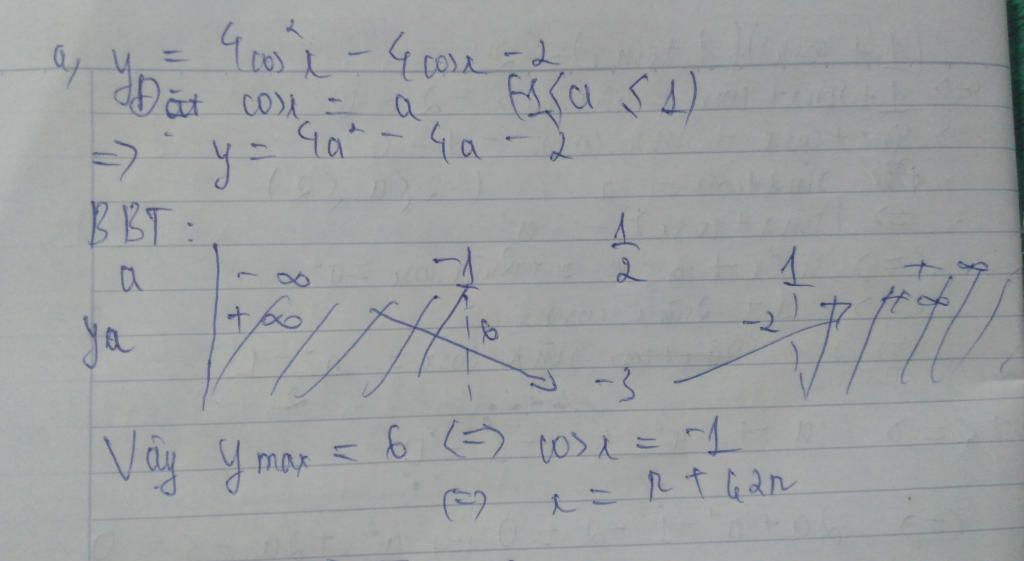 a, y = 4cos²x - 4cosx - 2
Đặt cosx = a (-1 ≤ a ≤ 1)
=> y = 4a² - 4a - 2
BBT:
a -∞ -1 1/2 1 +∞
ya +∞ 6 -3 -2 +∞
Vậy ymax = 6 <=> cosx = -1
<=> x = π + k2π